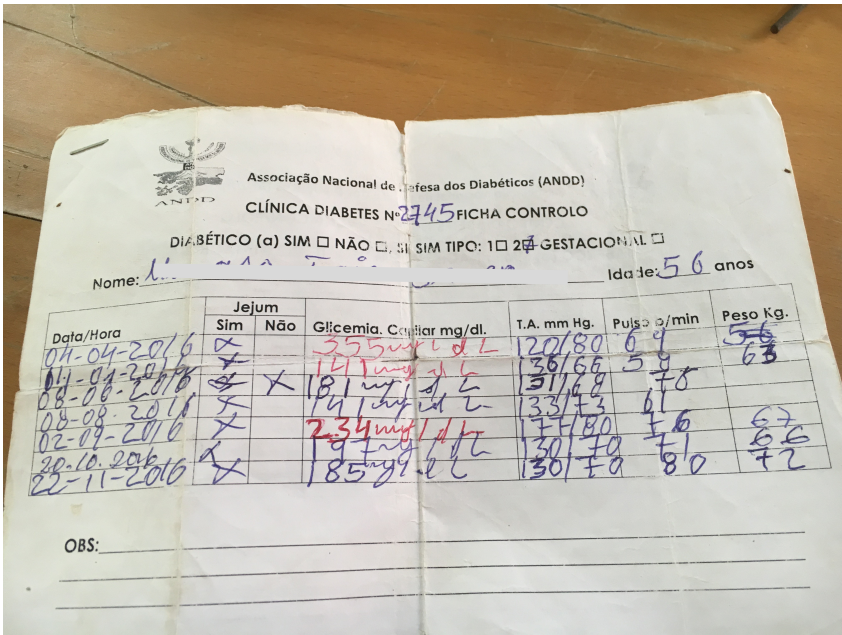 ANDD
Associação Nacional de Defesa dos Diabéticos (ANDD)
CLÍNICA DIABETES Nº 2745 FICHA CONTROLO
DIABÉTICO (a) SIM ☐ NÃO ☐, SE SIM TIPO: 1☐ 2☑ GESTACIONAL ☐
Nome: Idade: 56 anos
Data/Hora Jejum Sim Não Glicemia. Capilar mg/dl. T.A. mm Hg. Pulso p/min Peso Kg.
04-04-2016 x 355 mg/dL 120/80 69 56
2016 x 141 mg/dL 136/66 59 63
2016 x x 181 mg/dL 131/68 78
08-08-2016 x 141 mg/dL 133/73 61
02-09-2016 x 234 mg/dL 177/80 76 67
20.10.2016 x 197 mg/dL 130/70 71 66
22-11-2016 x 185 mg/dL 130/70 80 72
OBS: